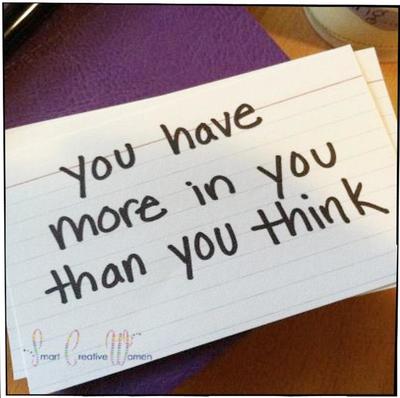 you have
more in you
than you think
Smart Creative Women